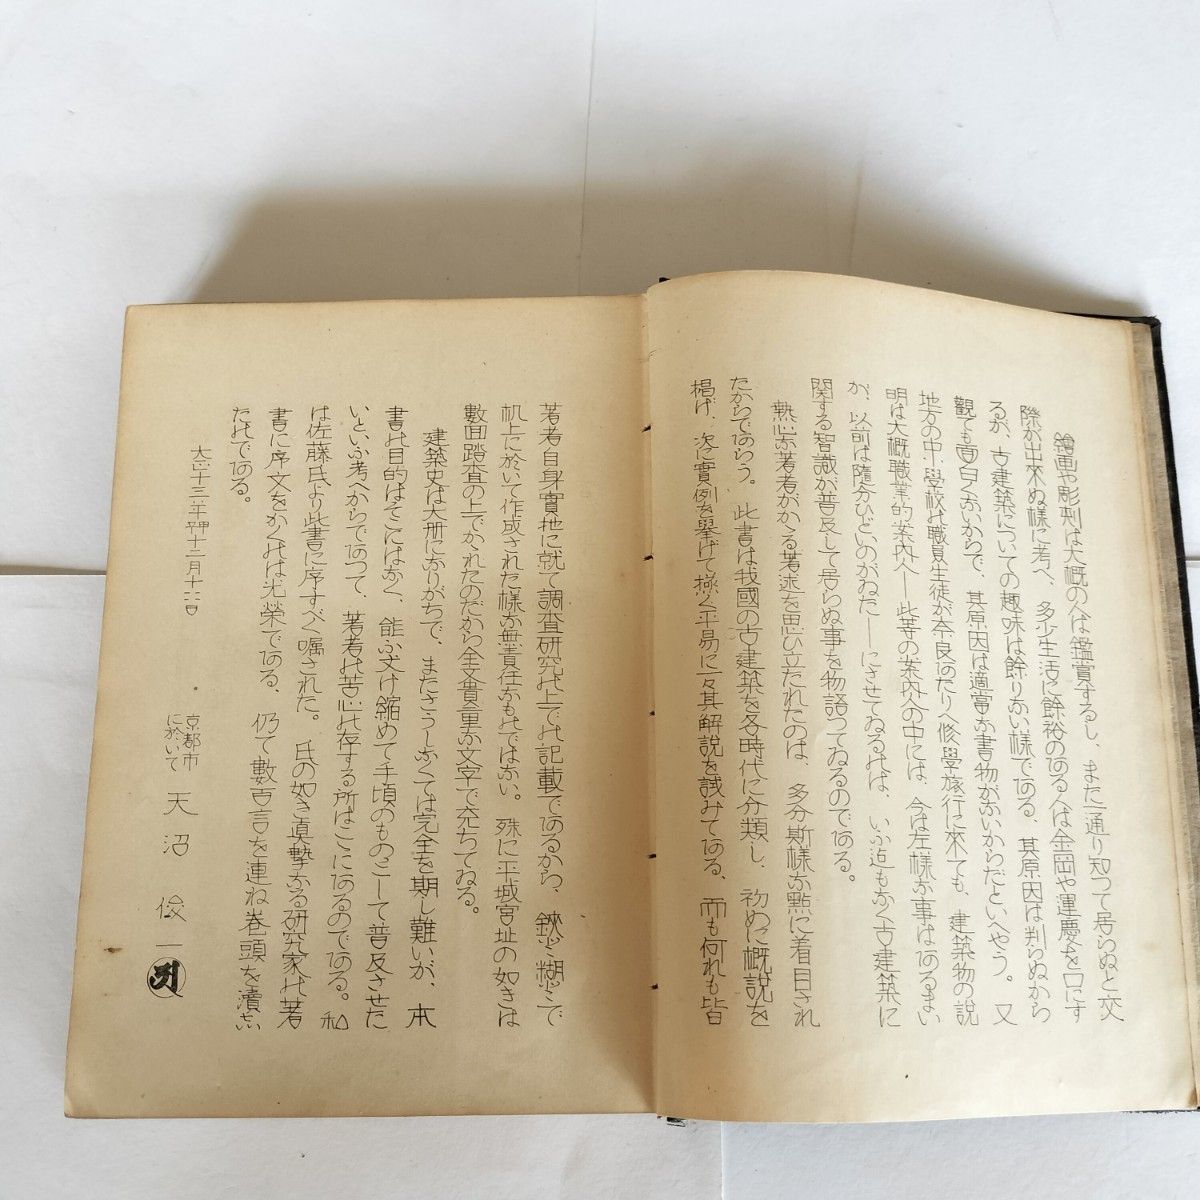 繪画や彫刻は大概の人は鑑賞するし、また一通り知つて居らぬと交
際が出來ぬ様に考へ、多少生活に餘裕のある人は金岡や運慶を口にす
るが、古建築についての趣味は餘りない様である、其原因は判らぬから
觀ても面白くないからで、其原因は適當な書物がないからだといへやう。又
地方の中、學校の職員生徒が奈良あたりへ修學旅行に來ても、建築物の説
明は大概職業的案内人——此等の案内人の中には、今は左様な事はあるまい
が、以前は隨分ひどいのがゐた——にさせてゐるのは、いふ迄もなく古建築に
関する智識が普及して居らぬ事を物語つてゐるのである。
熱心な著者がかゝる著述を思ひ立たれたのは、多分斯様な點に着目され
たからであらう。此書は我國の古建築を各時代に分類し、初めに概説を
掲げ、次に實例を擧げて極く平易に一々其解説を試みてある、而も何れも皆
著者自身實地に就て調査研究の上での記載であるから、鋏と糊とで
机上に於いて作成された様な無責任なものではない。殊に平城宮址の如きは
數回踏査の上でかゝれたのだから全文貴重な文字で充ちてゐる。
建築史は大册になりがちで、またさうしなくては完全を期し難いが、本
書の目的はそこにはなく、能ふ丈け縮めて手頃のものとして普及させた
いといふ考へからであつて、著者の苦心の存する所はこゝにあるのである。私
は佐藤氏より此書に序すべく嘱された。氏の如き真摯なる研究家の著
書に序文をかくのは光榮である、仍て數百言を連ね巻頭を瀆し
たのである。
大正十三年十二月十六日
京都市に於いて 天沼俊一